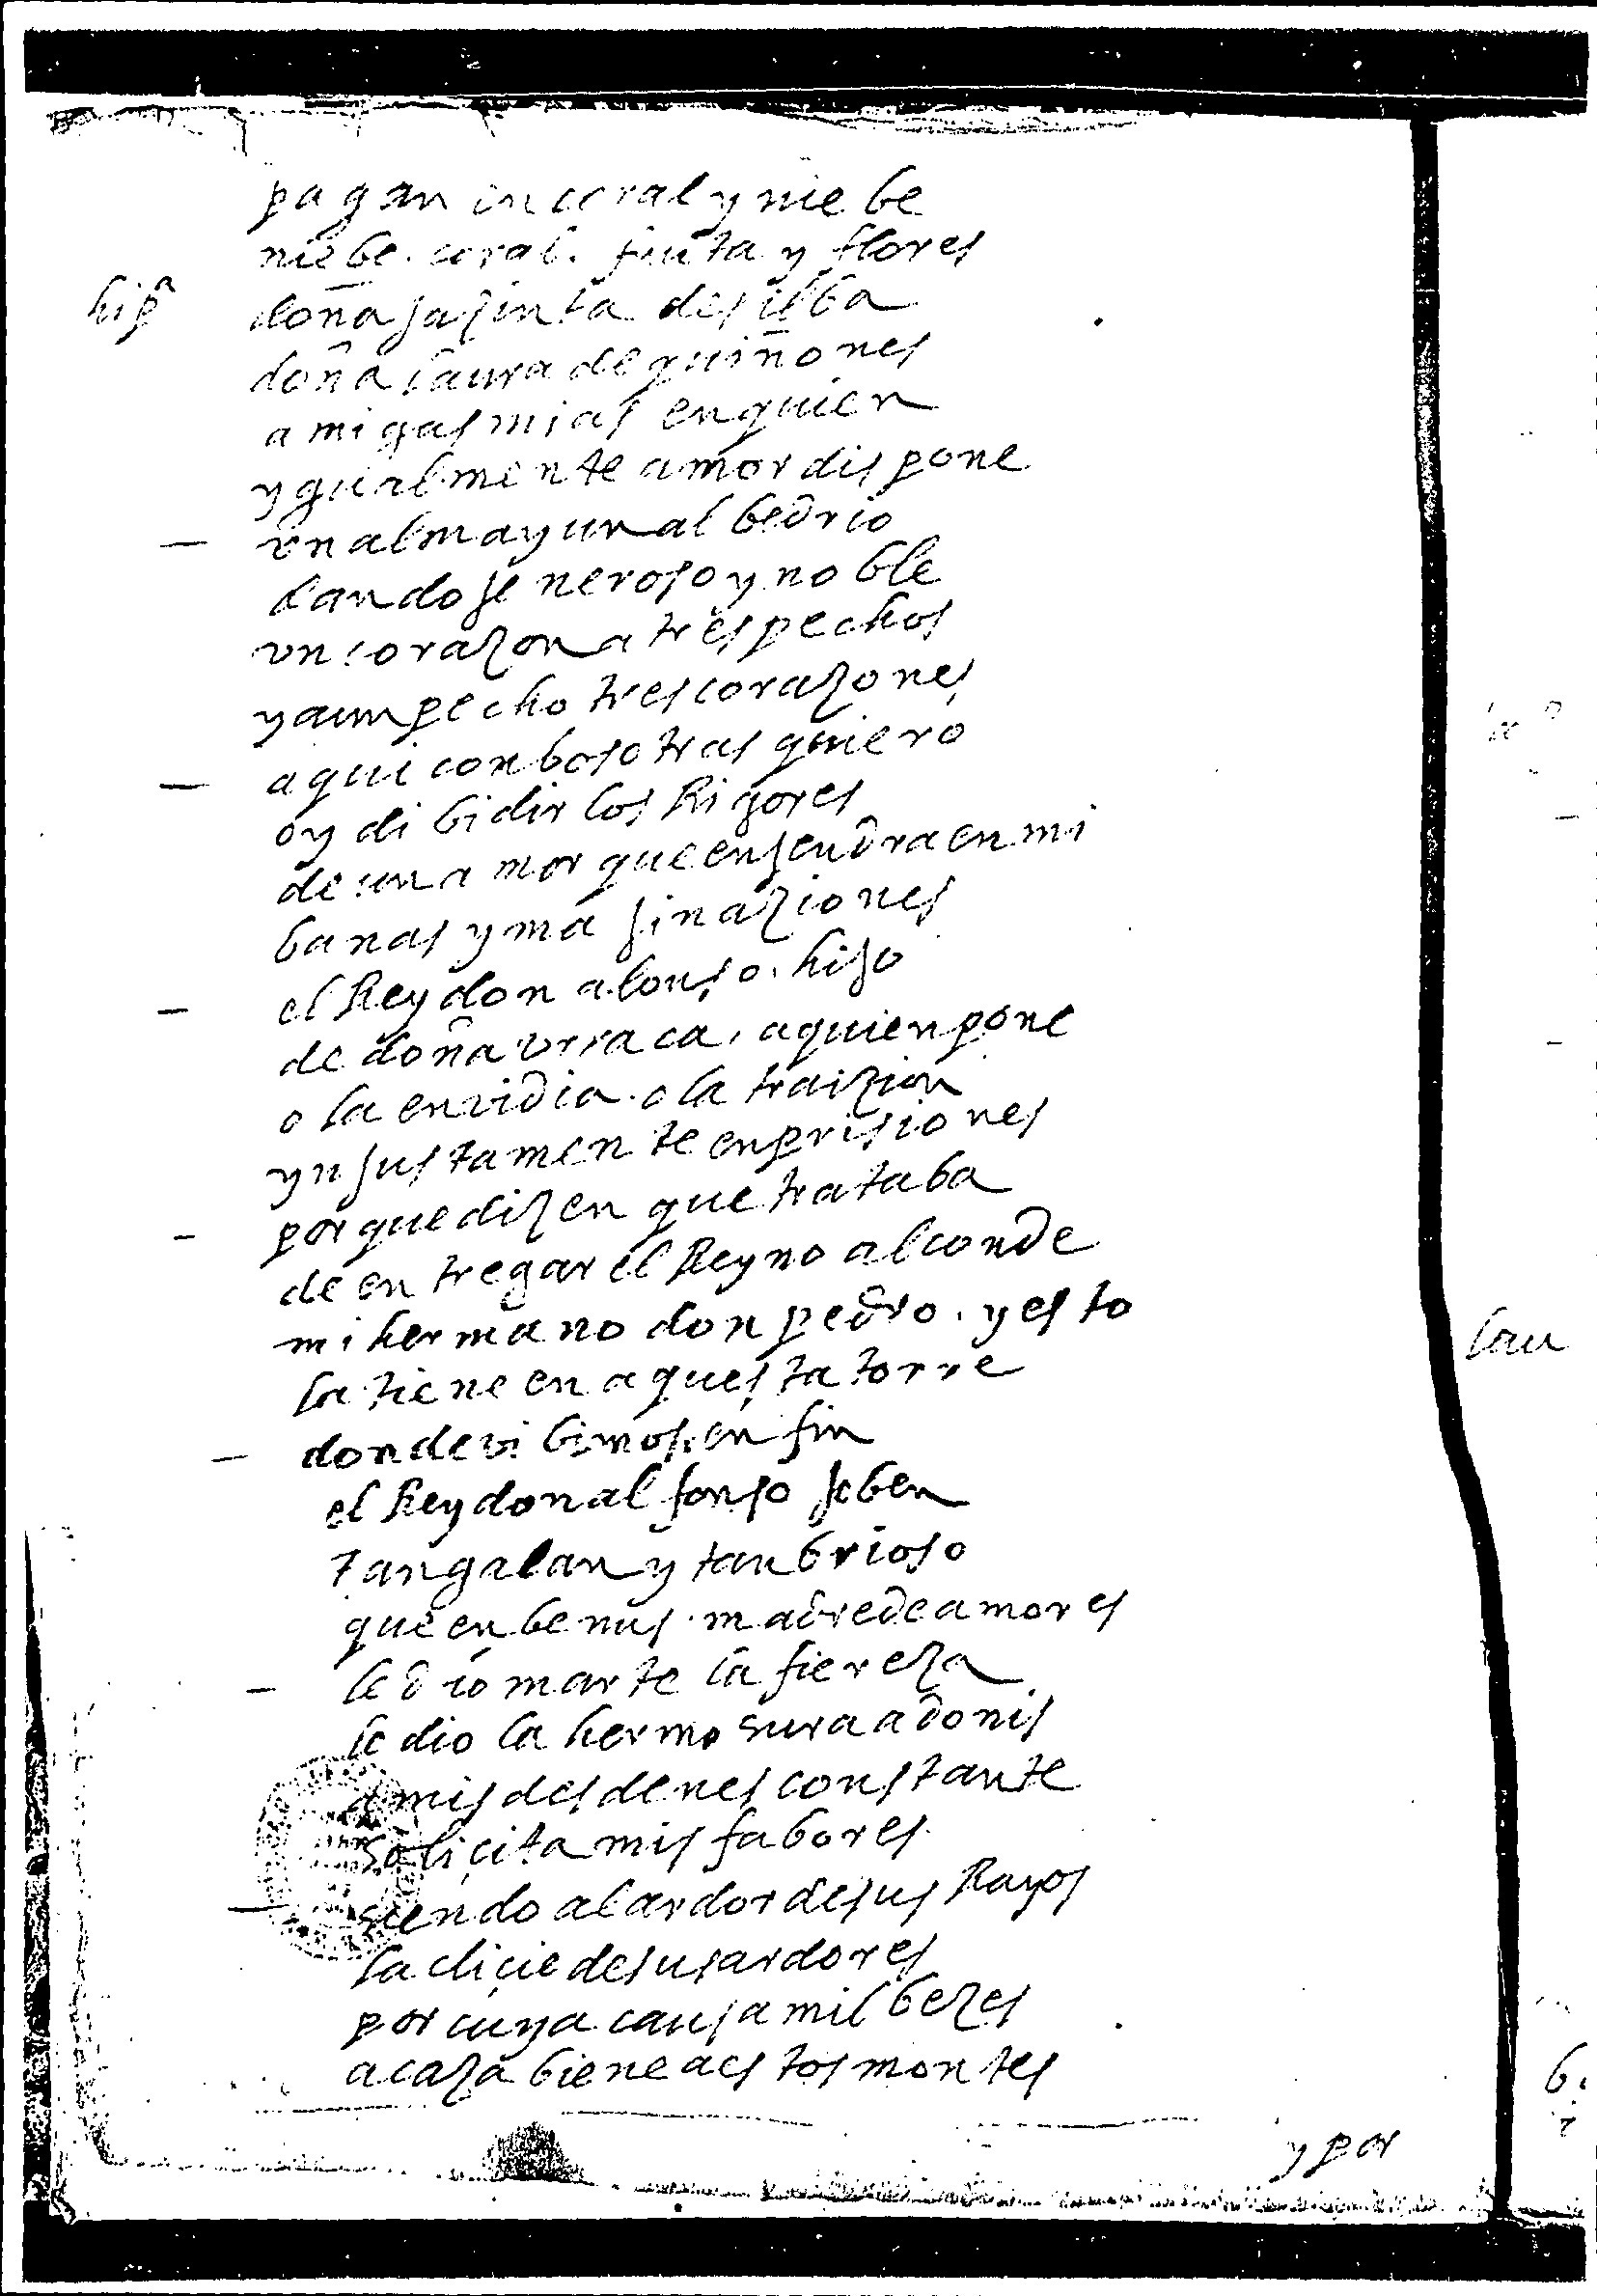 pagan en coral y niebe
niebe. coral. fruta y flores
hipª doña jazinta de silba
doña laura de quiñones
amigas mias en quien
ygualmente amor dispone
— vn alma y un albedrio
dando jeneroso y noble
vn corazon a tres pechos
y a un pecho tres corazones
— aqui con bosotras quiero
oy dibidir los Rigores
de un amor que enjendra en mi
banas ymajinaziones
— el Rey don alonso. hijo
de doña vrraca, a quien pone
o la envidia. o la traizion
ynjustamente en prisiones
— porque dizen que trataba
de entregar el Reyno al conde
mi hermano don pedro. y esto
la tiene en aquesta torre
— donde vibimos. en fin
el Rey don alfonso joben
tan galan y tan brioso
que en benus. madre de amores
— le dio marte la fiereza
le dio la hermosura adonis
a mis desdenes constante
solicita mis fabores
— siendo al ardor de sus Rayos
la clicie de sus ardores
por cuya causa mil bezes
a caza biene a estos montes
y por
lau